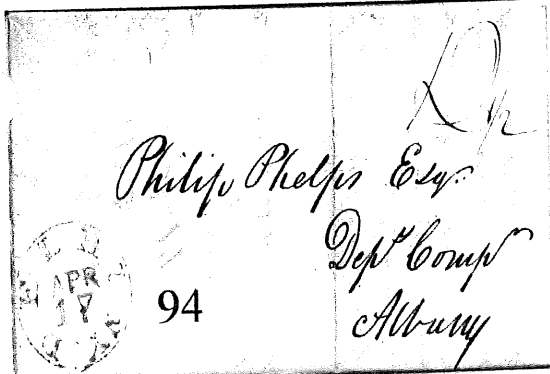 Philip Phelps Esqr
Dept Compr
Albany
APR
17
94